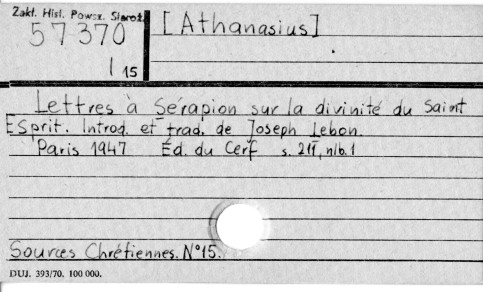 Zakł. Hist. Powsz. Staroż.
57370
[Athanasius]
I 15
Lettres à Sérapion sur la divinité du Saint
Esprit. Introd. et trad. de Joseph Lebon.
Paris 1947 Éd. du Cerf s. 211, nlb. 1
Sources Chrétiennes. N°15.
DUJ. 393/70. 100 000.